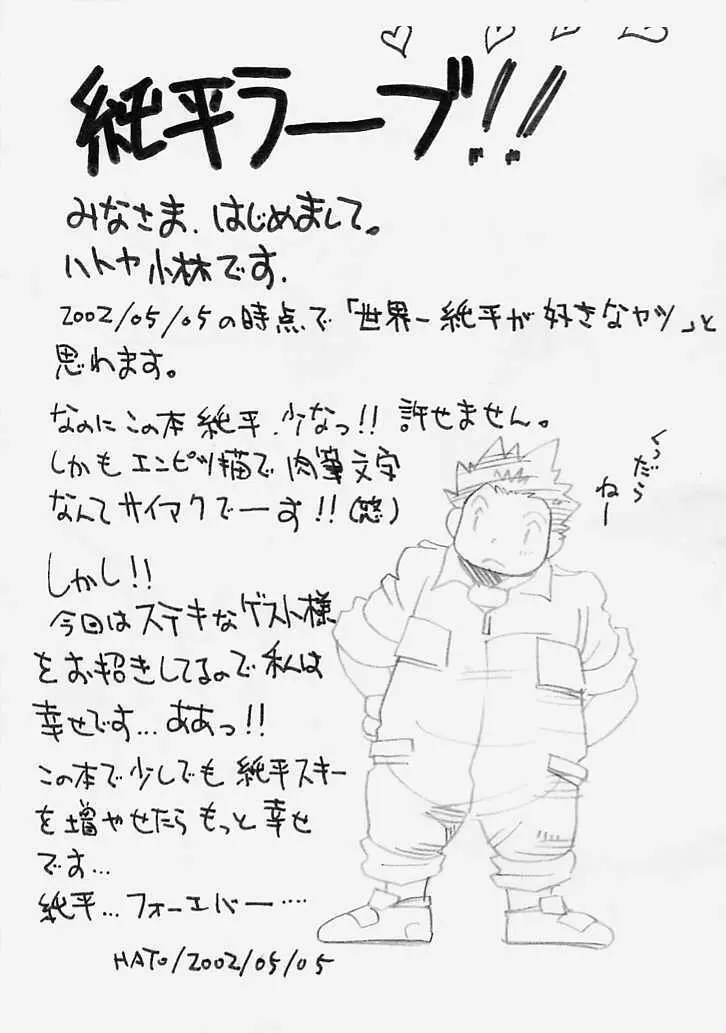 純平ラーブ!!
みなさま、はじめまして。
ハトヤ小林です.
2002/05/05の時点で「世界一純平が好きなヤツ」と
思われます。
なのにこの本純平、少なっ!!許せません。
しかもエンピツ描で肉筆文字
なんてサイアクでーす!!(怒)
くっだら
ねー
しかし!!
今回はステキなゲスト様
をお招きしてるので私は
幸せです…ああっ!!
この本で少しでも純平スキー
を増やせたらもっと幸せ
です…
純平…フォーエバー……
HATO/2002/05/05